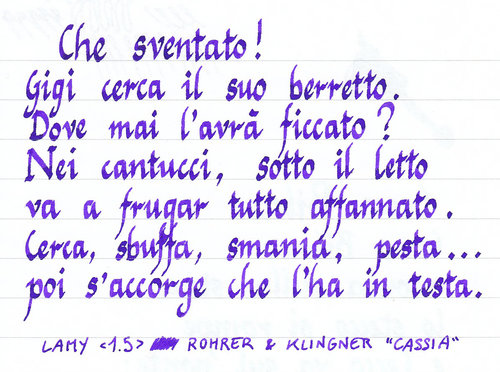 Che sventato!
Gigi cerca il suo berretto.
Dove mai l'avrà ficcato?
Nei cantucci, sotto il letto
va a frugar tutto affannato.
Cerca, sbuffa, smania, pesta...
poi s'accorge che l'ha in testa.
LAMY <1.5> ROHRER & KLINGNER "CASSIA"